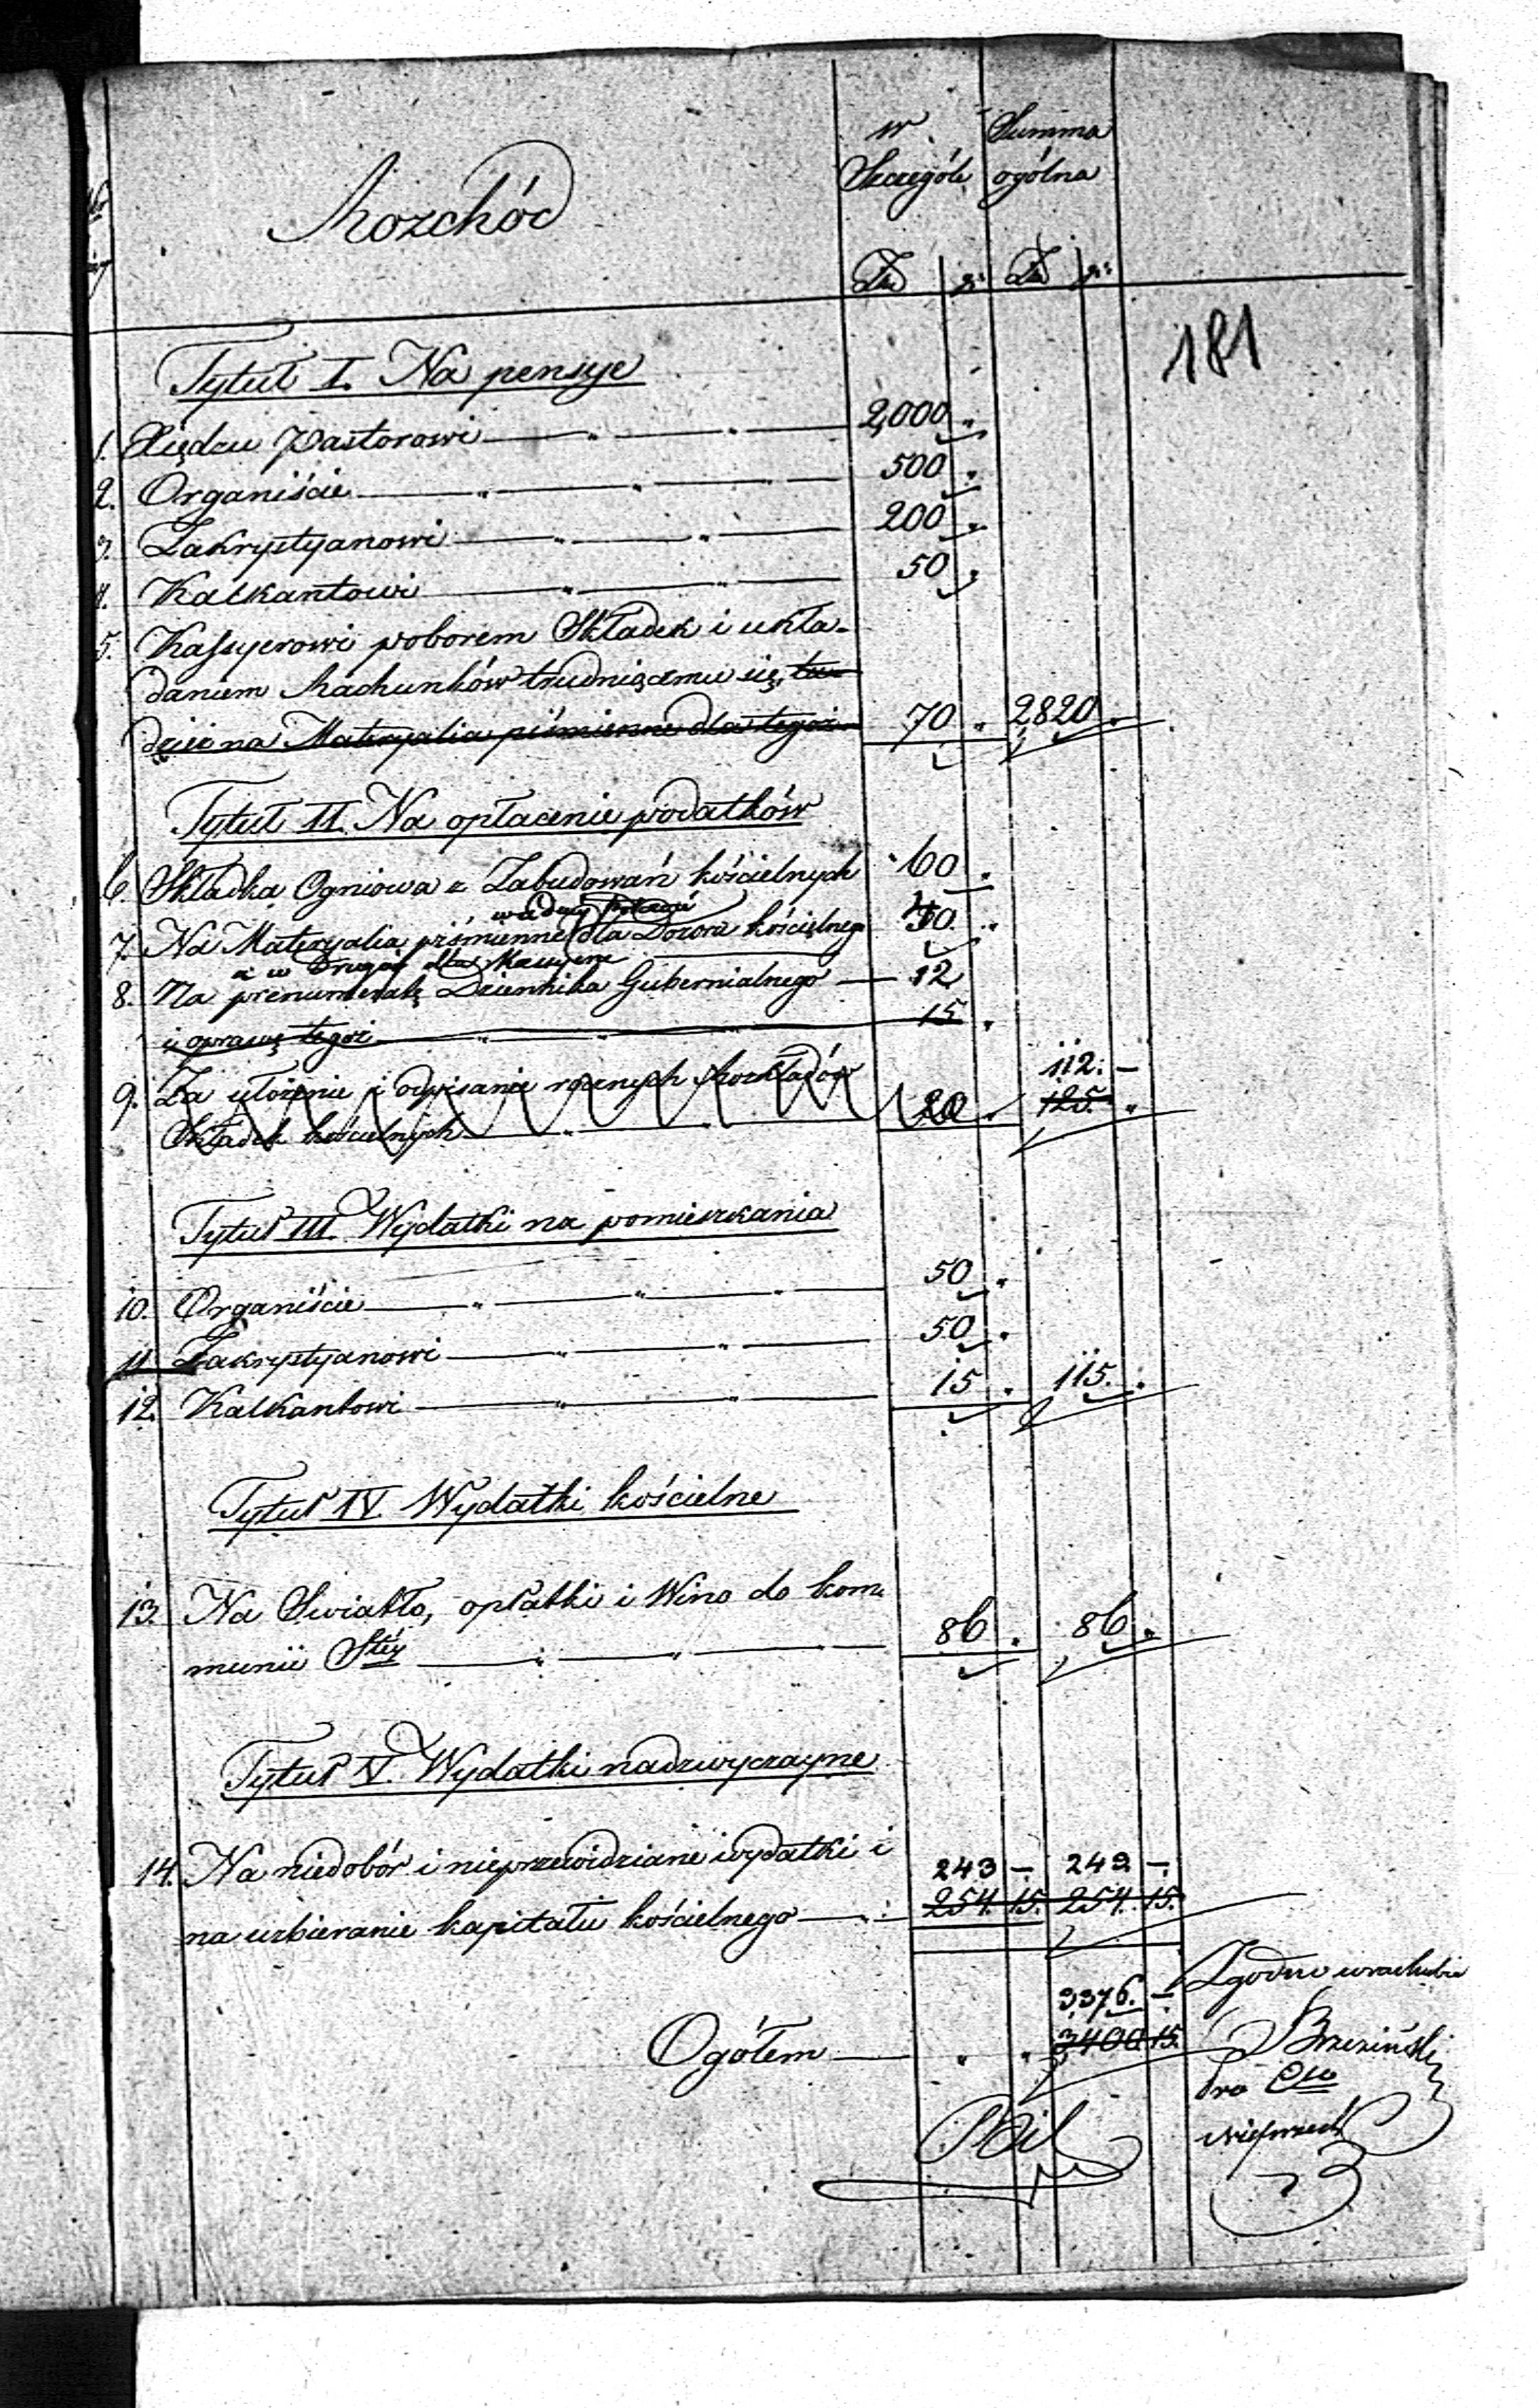 w Summa
Szczególe ogólna
Rozchód
Złp gr: Złp gr:
181
Tytuł I. Na pensye
1. Xiędzu Pastorowi 2,000 "
2. Organiście 500 "
3. Zakrystyanowi 200 "
4. Kalkantowi 50 "
5. Kassyerowi poborem Składek i ukła-
daniem Rachunków trudniącemu się, tu-
dzież na Materyalia piśmienne dla tegoż 70 " 2820 "
Tytuł II. Na opłacenie podatków
6. Składka Ogniowa z Zabudowań kościelnych 60 "
w jedney połowie
7. Na Materyalia piśmienne dla Dozoru kościelnego 40 "
a w drugiéj dla Kassyera
8. Na prenumeratę Dziennika Gubernialnego 12
i oprawę tegoż 15 "
112. –
9. Za ułożenie i odpisanie rocznych Rozkładów
Składek kościelnych 20 " 125. "
Tytuł III. Wydatki na pomieszkania
10. Organiście 50 "
11. Zakrystyanowi 50 "
12. Kalkantowi 15 " 115. "
Tytuł IV. Wydatki kościelne
13. Na Swiatło, opłatki i Wino do kom-
munii Stéy 86 " 86 "
Tytuł V. Wydatki nadzwyczayne
14. Na niedobór i nieprzewidziane wydatki i 243 – 243 –
na uzbieranie kapitału kościelnego 254. 15. 254. 15.
Zgodno w rachubie
3,376. –
Ogółem " " 3400 15.
Brzeziński